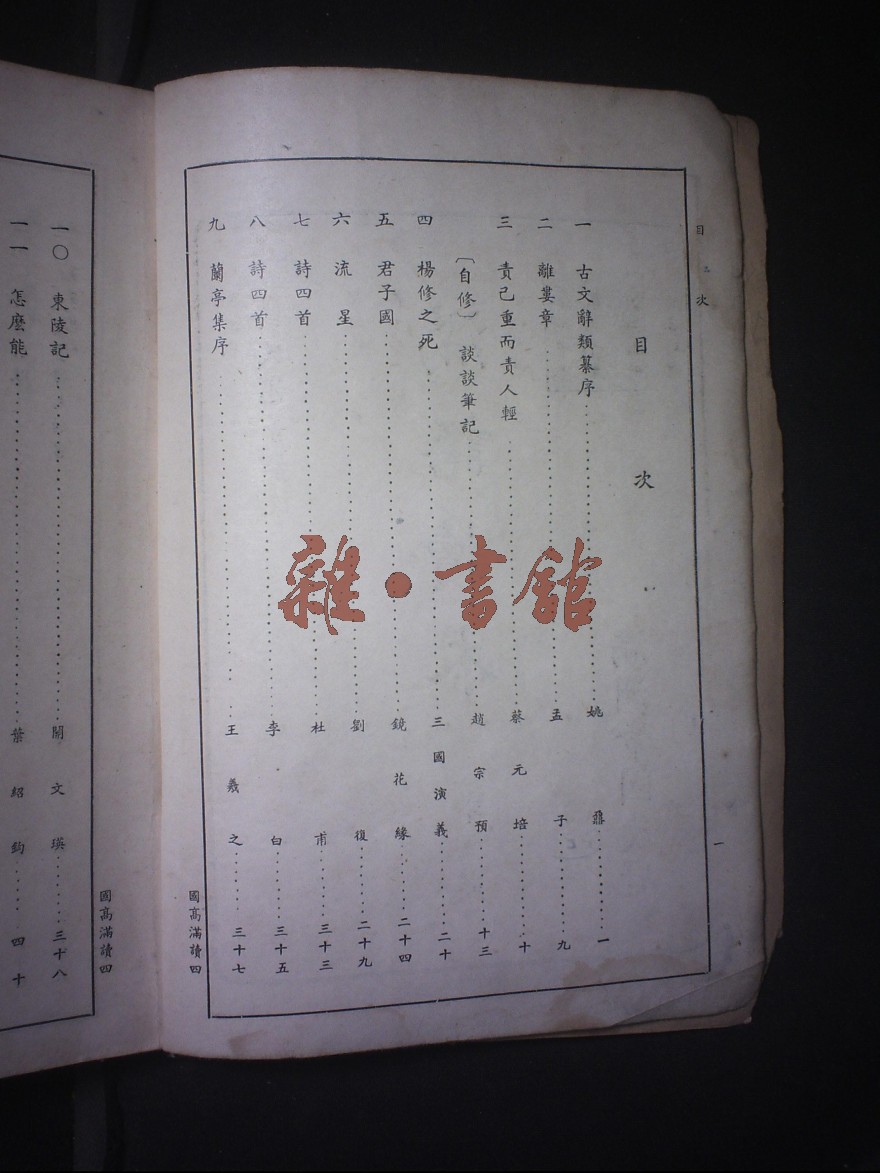 目次
一
目次
一 古文辭類纂序 姚鼐 一
二 離婁章 孟子 九
三 責己重而責人輕 蔡元培 十
〔自修〕 談談筆記 趙宗預 十三
四 楊修之死 三國演義 二十
五 君子國 鏡花緣 二十四
六 流星 劉復 二十九
七 詩四首 杜甫 三十三
八 詩四首 李白 三十五
九 蘭亭集序 王羲之 三十七
國高滿讀四
國高滿讀四
一〇 東陵記 關文瑛 三十八
一一 怎麼能 葉紹鈞 四十
雜·書館